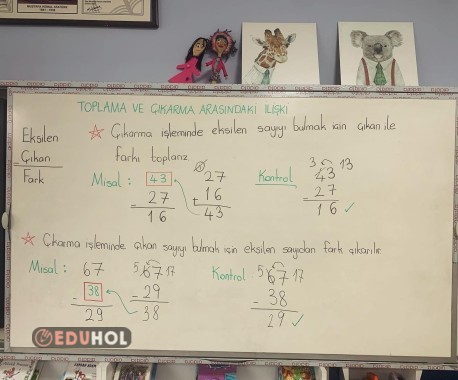 TOPLAMA VE ÇIKARMA ARASINDAKİ İLİŞKİ
Eksilen
- Çıkan
Fark
☆ Çıkarma işleminde eksilen sayıyı bulmak için çıkan ile
farkı toplarız
Misal :
43
- 27
16
27
+ 16
43
Kontrol
3 13
43
- 27
16 ✓
☆ Çıkarma işleminde çıkan sayıyı bulmak için eksilen sayıdan fark çıkarılır
Misal :
67
- 38
29
5 67 17
- 29
38
Kontrol
5 67 17
- 38
29 ✓
EDUHOL